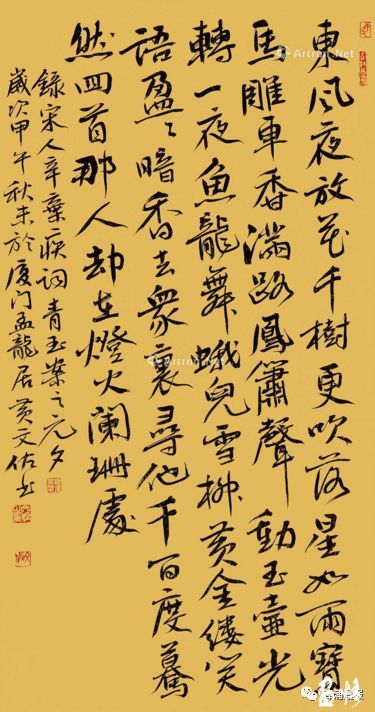 東风夜放花千樹更吹落星如雨寶
馬雕車香滿路鳳簫聲動玉壺光
轉一夜魚龍舞蛾兒雪柳黄金縷笑
語盈々暗香去衆裏尋他千百度驀
然回首那人却在燈火阑珊處
錄宋人辛棄疾詞青玉案之元夕
歲次甲午秋末於厦门孟龍居黄文佑书
Artron.Net